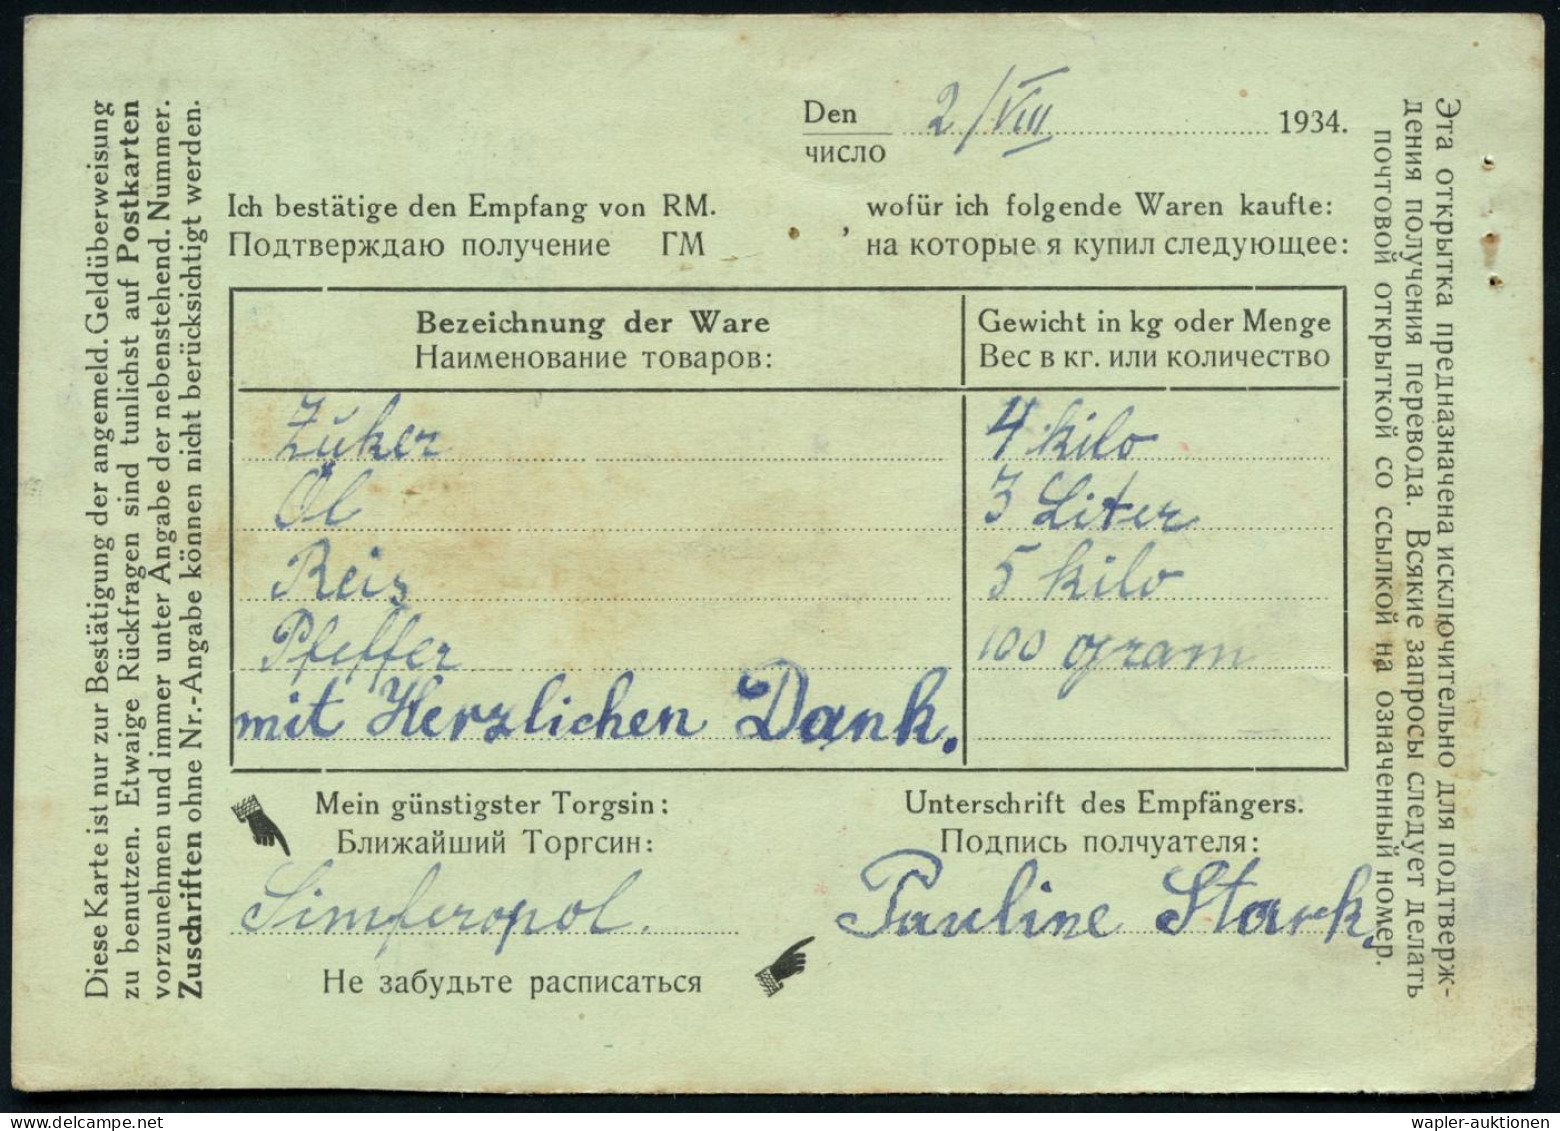 Diese Karte ist nur zur Bestätigung der angemeld. Geldüberweisung
zu benutzen. Etwaige Rückfragen sind tunlichst auf Postkarten
vorzunehmen und immer unter Angabe der nebenstehend. Nummer.
Zuschriften ohne Nr.-Angabe können nicht berücksichtigt werden.
Den 2/VIII 1934.
число
Ich bestätige den Empfang von RM. wofür ich folgende Waren kaufte:
Подтверждаю получение ГМ , на которые я купил следующее:
Bezeichnung der Ware Gewicht in kg oder Menge
Наименование товаров: Вес в кг. или количество
Zuker 4 kilo
Öl 3 Liter
Reis 5 kilo
Pfeffer 100 gram
mit Herzlichen Dank.
Mein günstigster Torgsin: Unterschrift des Empfängers.
Ближайший Торгсин: Подпись полчуателя:
Simferopol. Pauline Stark,
Не забудьте расписаться
Эта открытка предназначена исключительно для подтверж-
дения получения перевода. Всякие запросы следует делать
почтовой открыткой со ссылкой на означенный номер.
wapler-auktionen